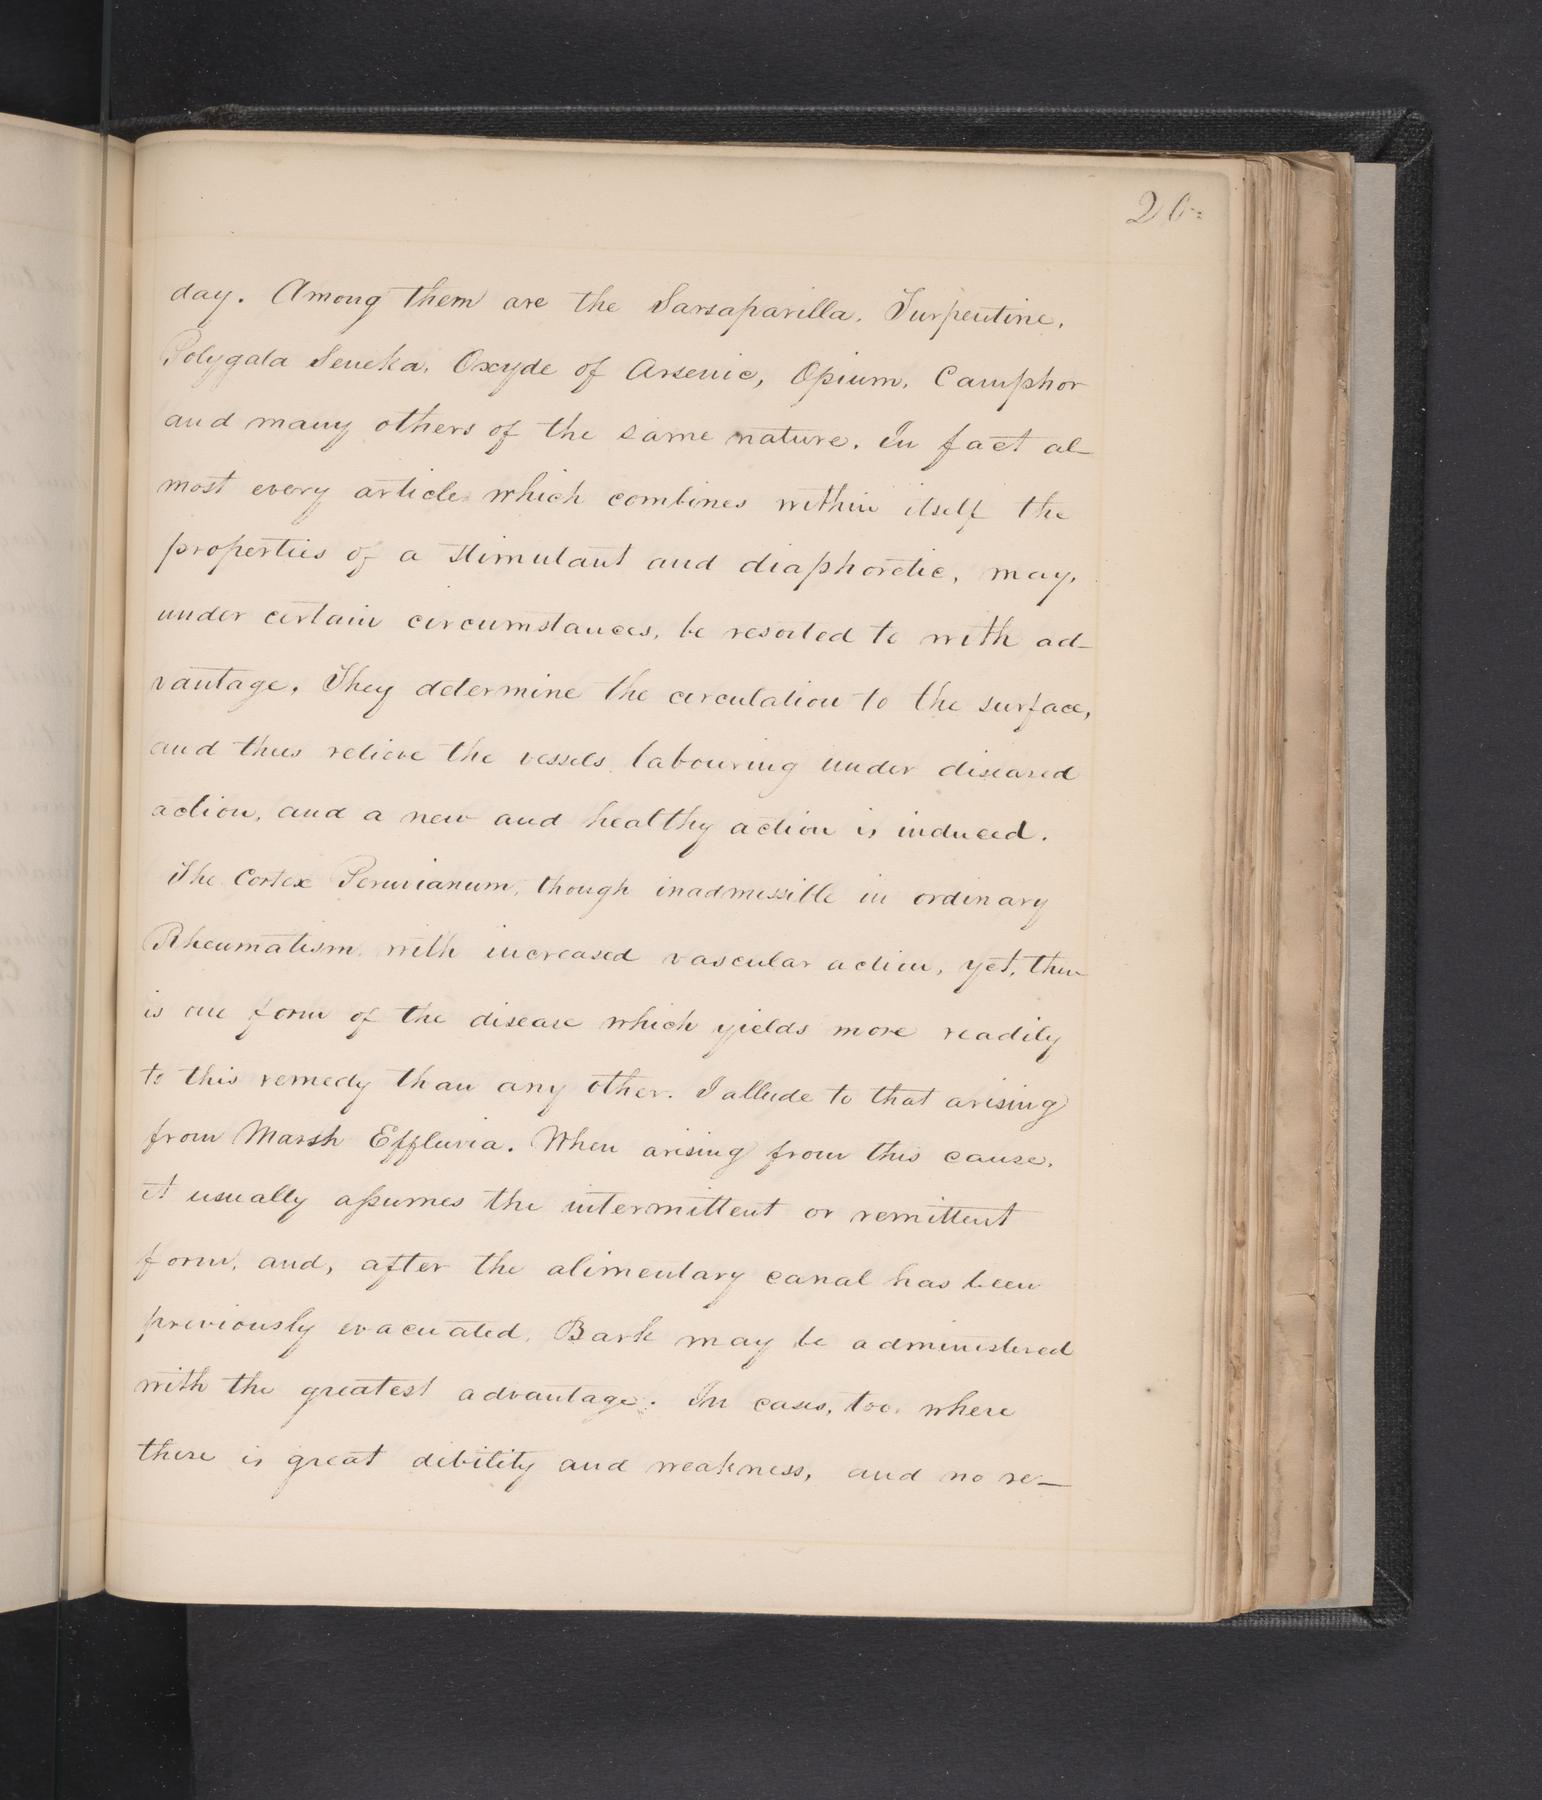 26
day. Among them are the Sarsaparilla, Turpentine,
Polygala Seneka, Oxyde of Arsenic, Opium, Camphor
and many others of the same nature. In fact al-
most every article which combines within itself the
properties of a stimulant and diaphoretic, may,
under certain circumstances, be resorted to with ad-
vantage. They determine the circulation to the surface,
and thus relieve the vessels labouring under diseased
action, and a new and healthy action is induced.
The Cortex Peruvianum, though inadmissible in ordinary
Rheumatism with increased vascular action, yet, there
is one form of the disease which yields more readily
to this remedy than any other. I allude to that arising
from Marsh Effluvia. When arising from this cause,
it usually assumes the intermittent or remittent
form, and, after the alimentary canal has been
previously evacuated, Bark may be administered
with the greatest advantage. In cases, too, where
there is great debility and weakness, and no re-